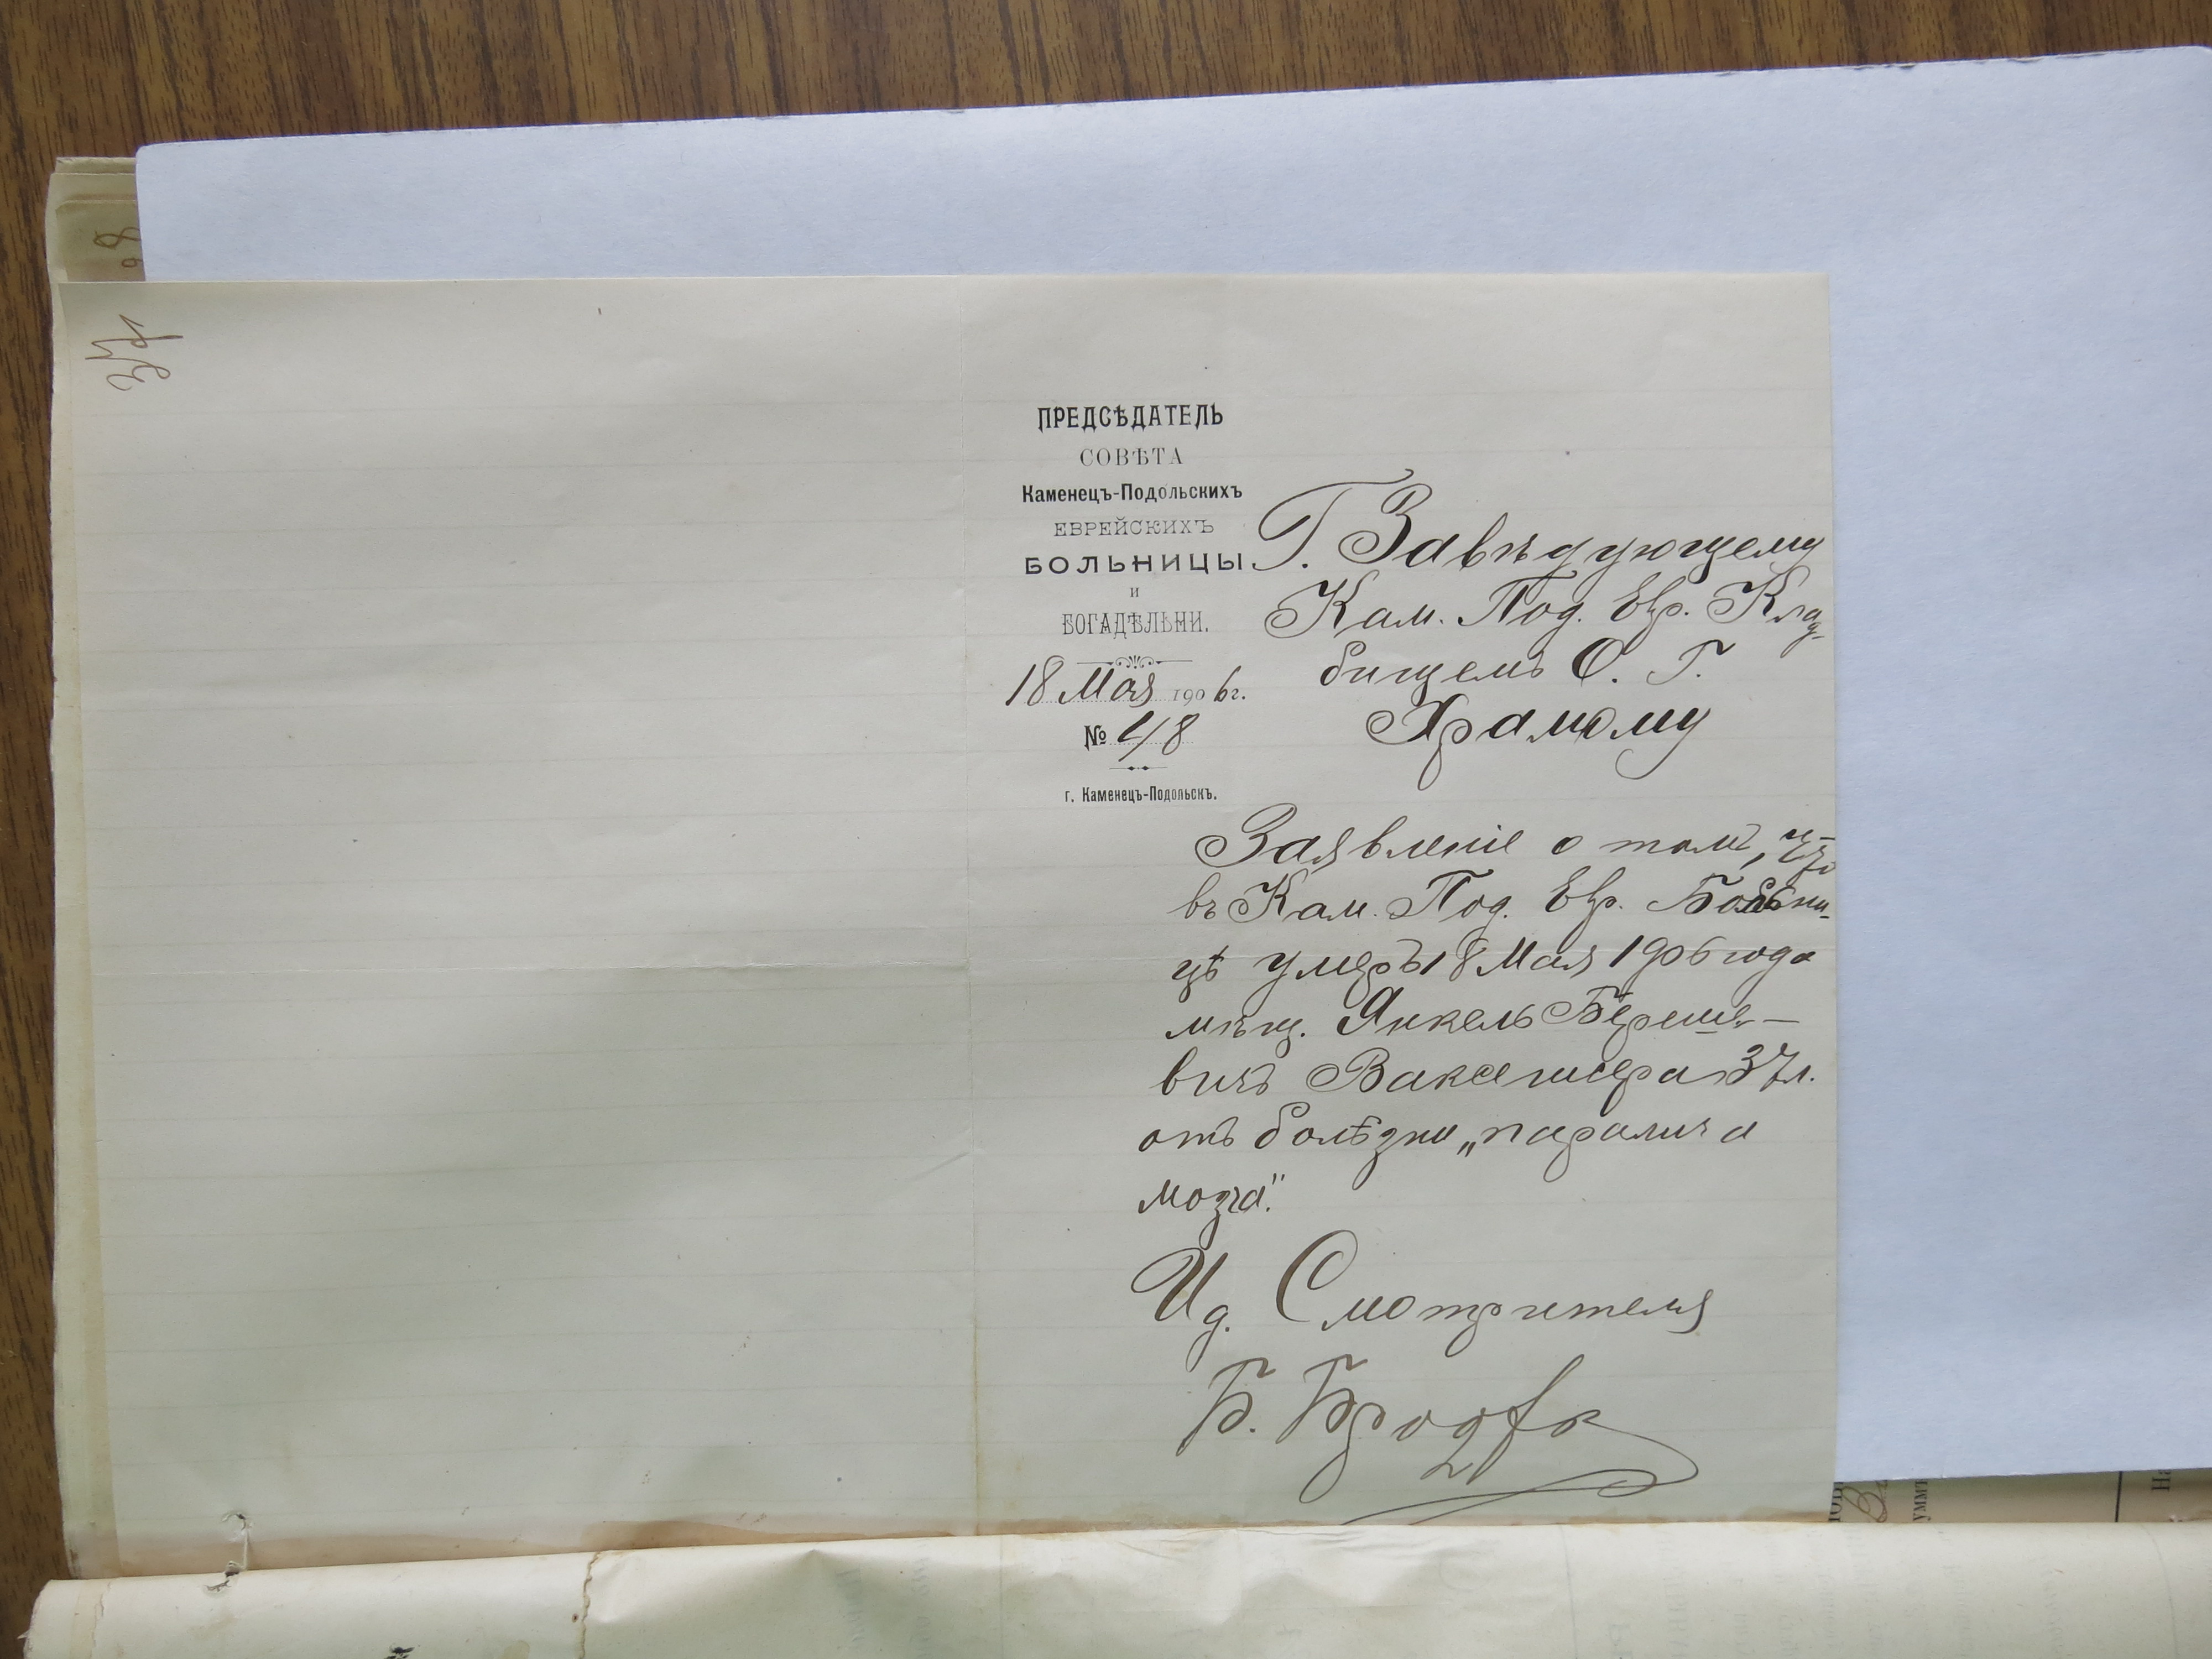 ПРЕДСѢДАТЕЛЬ
СОВѢТА
Каменецъ-Подольскихъ
ЕВРЕЙСКИХЪ
БОЛЬНИЦЫ
И
БОГАДѢЛЬНИ.
18 Мая 1906 г.
№ 48
г. Каменецъ-Подольскъ.
Г. Завѣдующему
Кам. Под. Евр. Клад-
бищемъ О. Г.
Храмому
Заявленіе о томъ, что
въ Кам. Под. Евр. Больни-
цѣ умеръ 18 Мая 1906 года
мѣщ. Янкель Береше-
вичъ 37 л.
отъ болѣзни „паралича
мозга".
Ид. Смотрителя
Б.